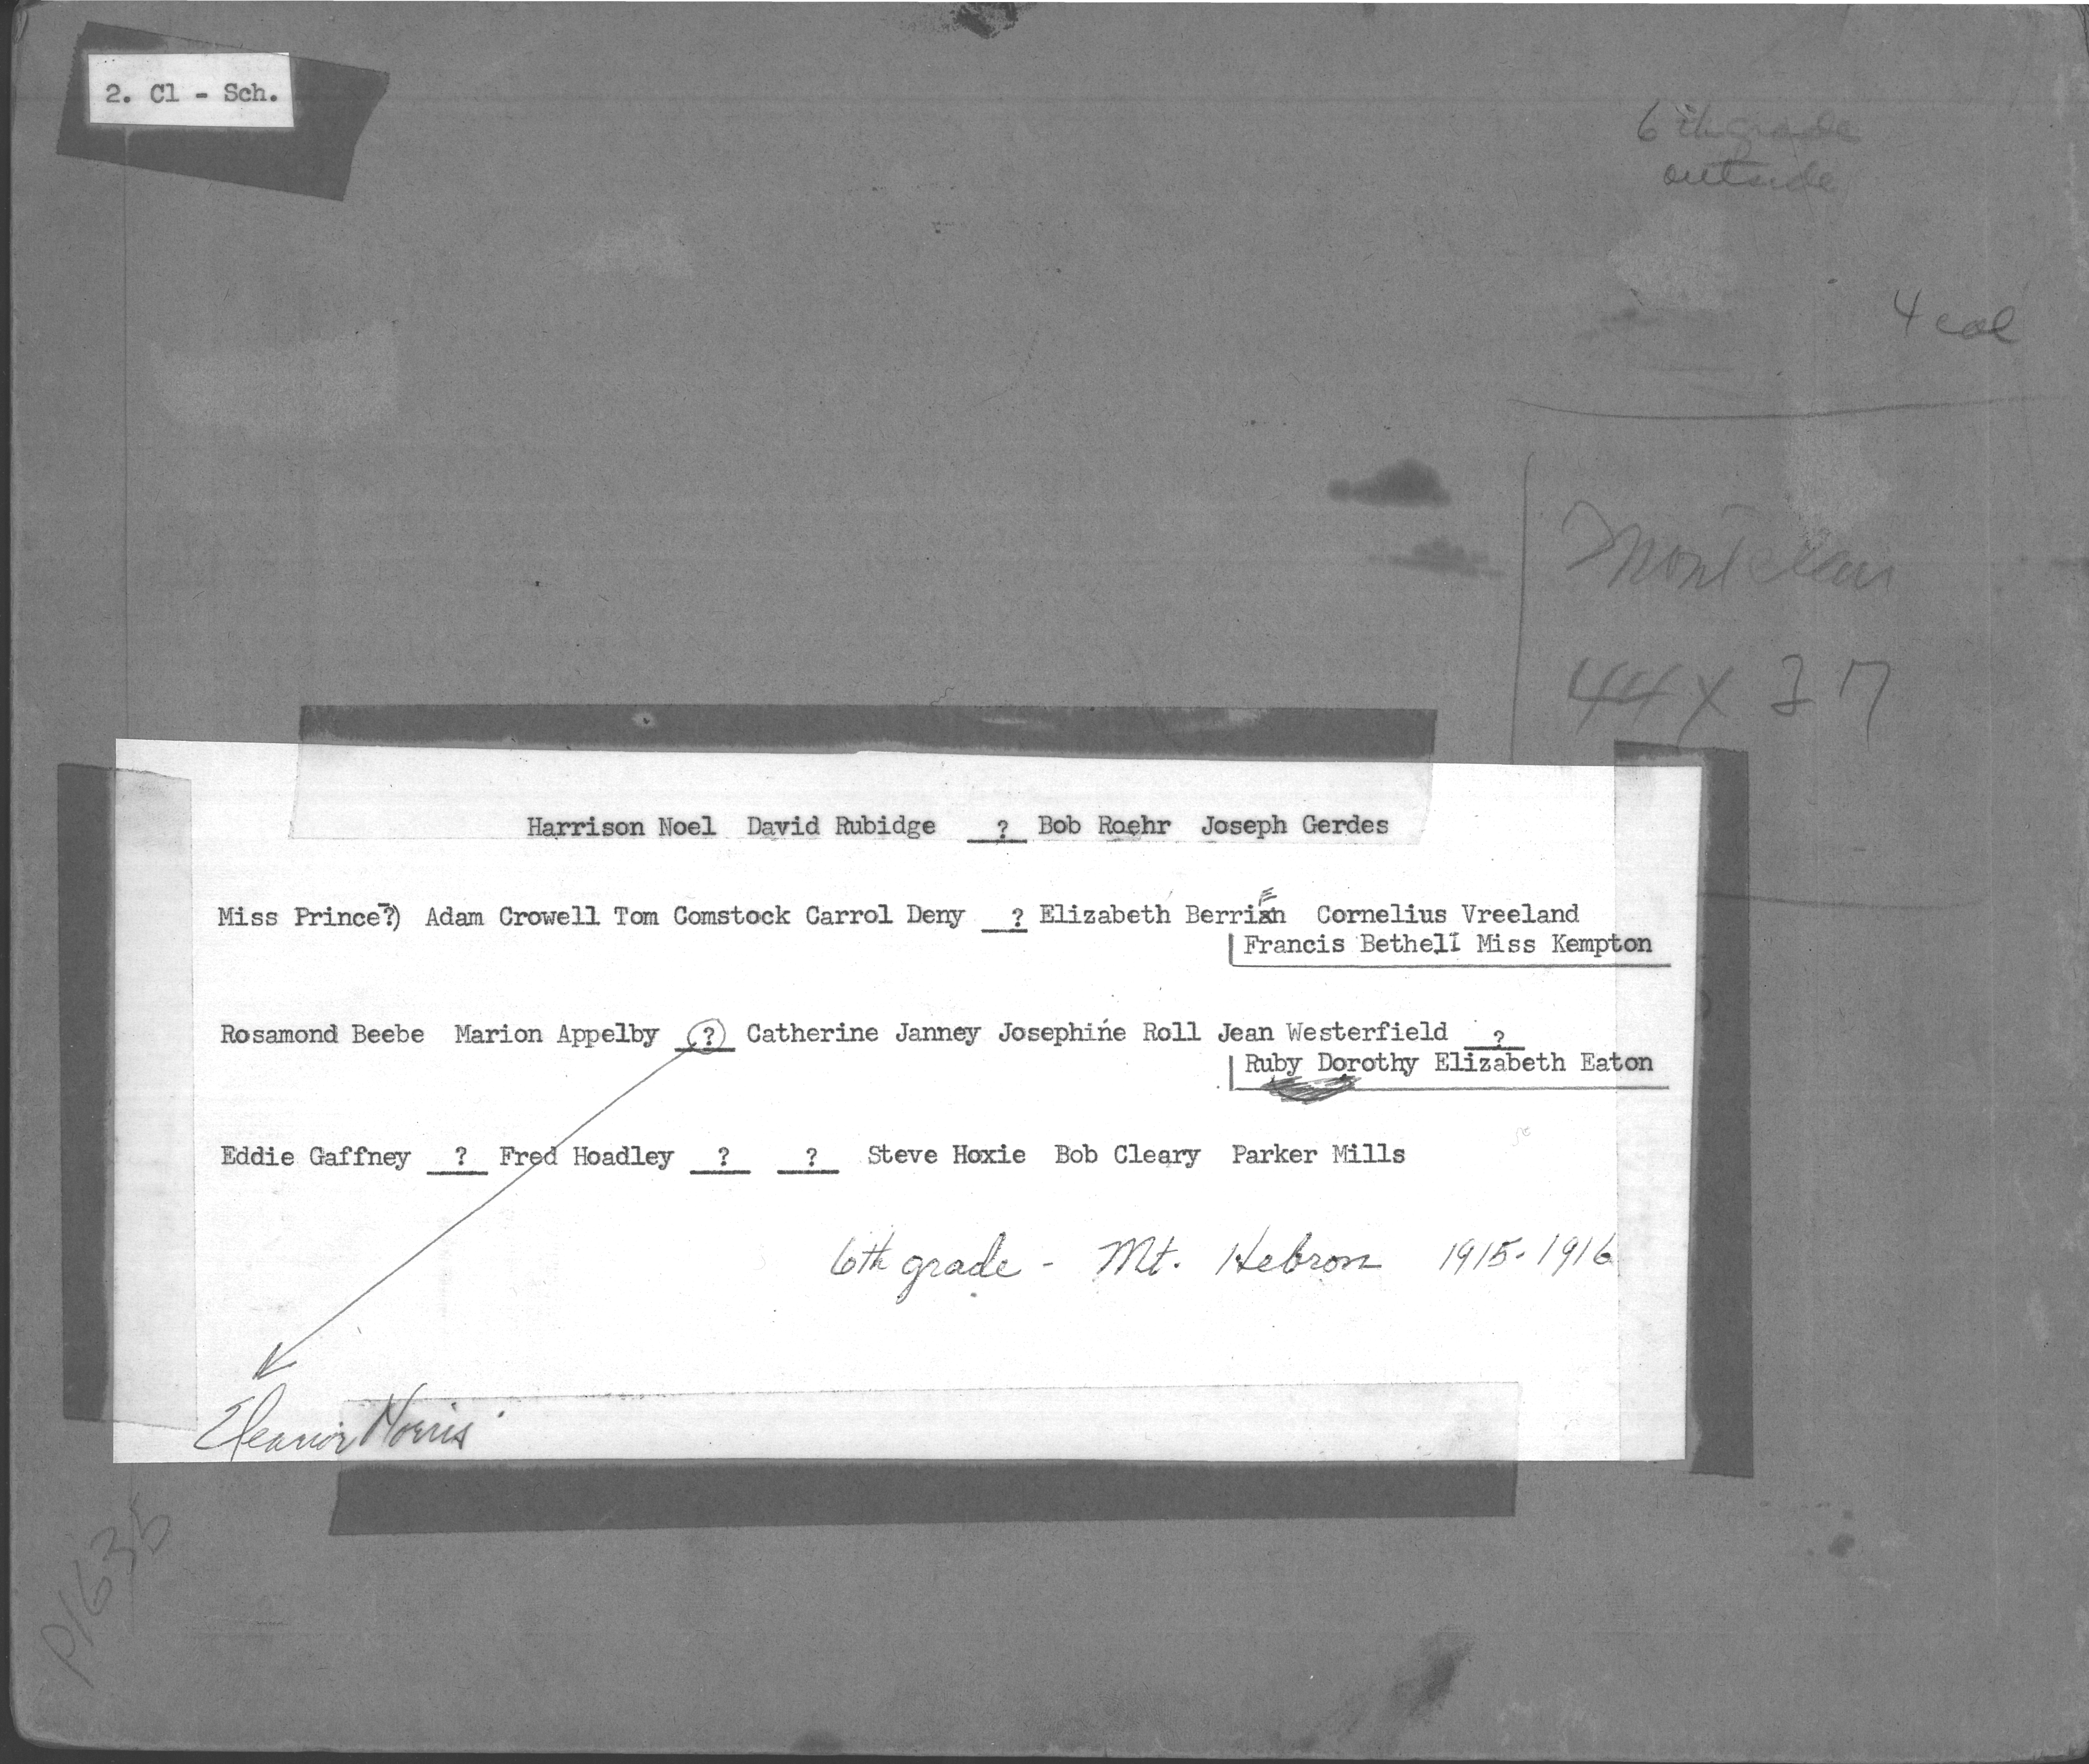 2. Cl - Sch.
6th grade
outside
4 col
Montclair
44 X 37
Harrison Noel David Rubidge ? Bob Roehr Joseph Gerdes
Miss Prince?) Adam Crowell Tom Comstock Carrol Deny ? Elizabeth Berrien Cornelius Vreeland
Francis Bethell Miss Kempton
Rosamond Beebe Marion Appelby ? Catherine Janney Josephine Roll Jean Westerfield ?
Ruby Dorothy Elizabeth Eaton
Eddie Gaffney ? Fred Hoadley ? ? Steve Hoxie Bob Cleary Parker Mills
6th grade - Mt. Hebron 1915-1916
Eleanor Norris
P1635